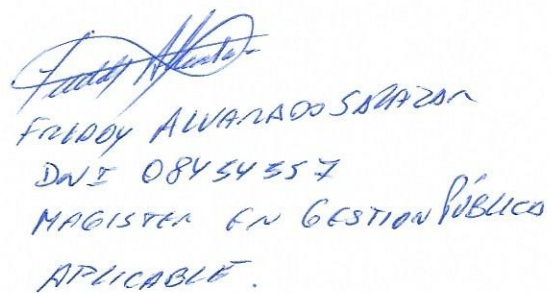 Freddy Alvarado
FREDDY ALVARADO SALAZAR
DNI 08454557
MAGISTER EN GESTION PÚBLICA
APLICABLE.